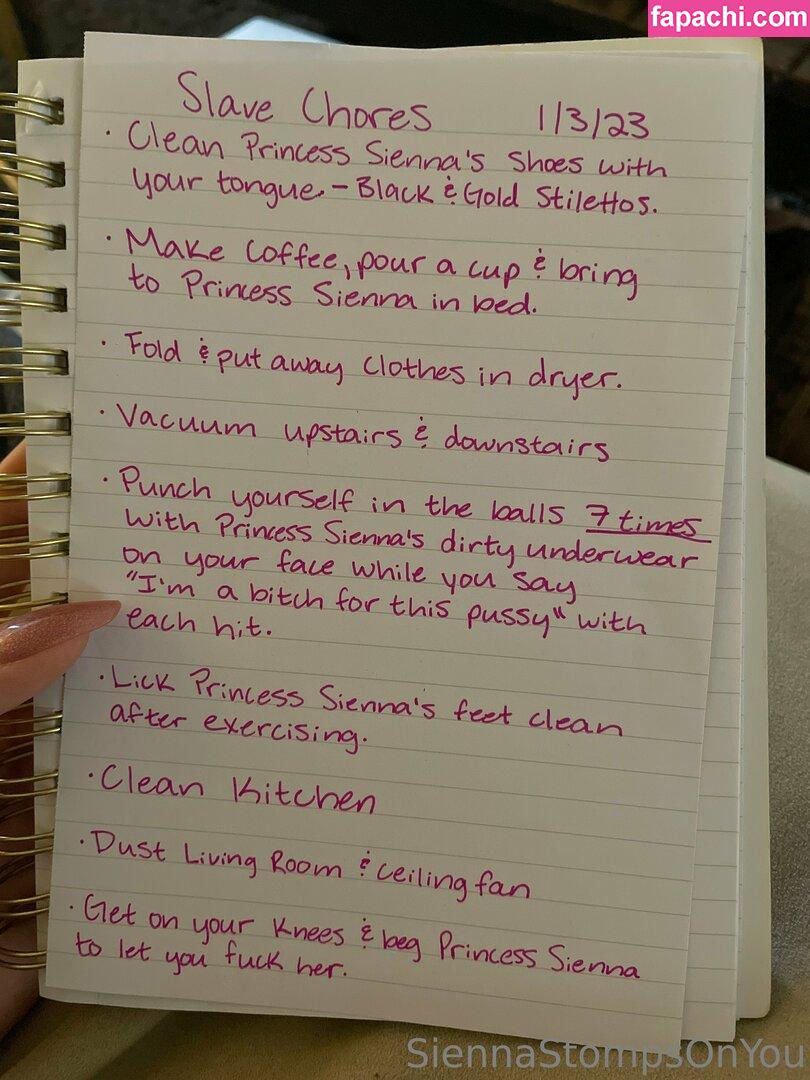 fapachi.com
Slave Chores 1/3/23
· Clean Princess Sienna's shoes with
your tongue. - Black & Gold Stilettos.
· Make coffee, pour a cup & bring
to Princess Sienna in bed.
· Fold & put away clothes in dryer.
· Vacuum upstairs & downstairs
· Punch yourself in the balls 7 times
with Princess Sienna's dirty underwear
on your face while you say
"I'm a bitch for this pussy" with
each hit.
· Lick Princess Sienna's feet clean
after exercising.
· Clean Kitchen
· Dust Living Room & ceiling fan
· Get on your knees & beg Princess Sienna
to let you fuck her.
SiennaStompsOnYou